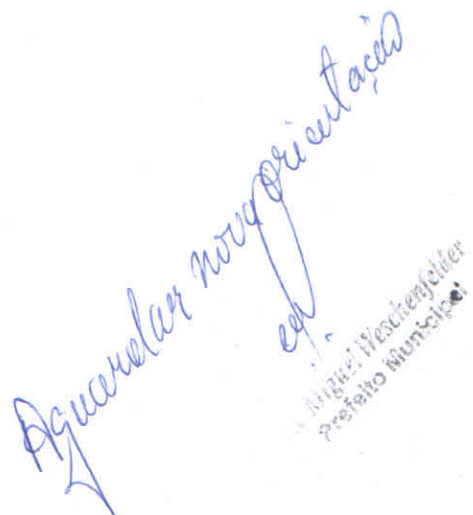 Aguardar nova orientação
Miguel Weschenfelder
Prefeito Municipal